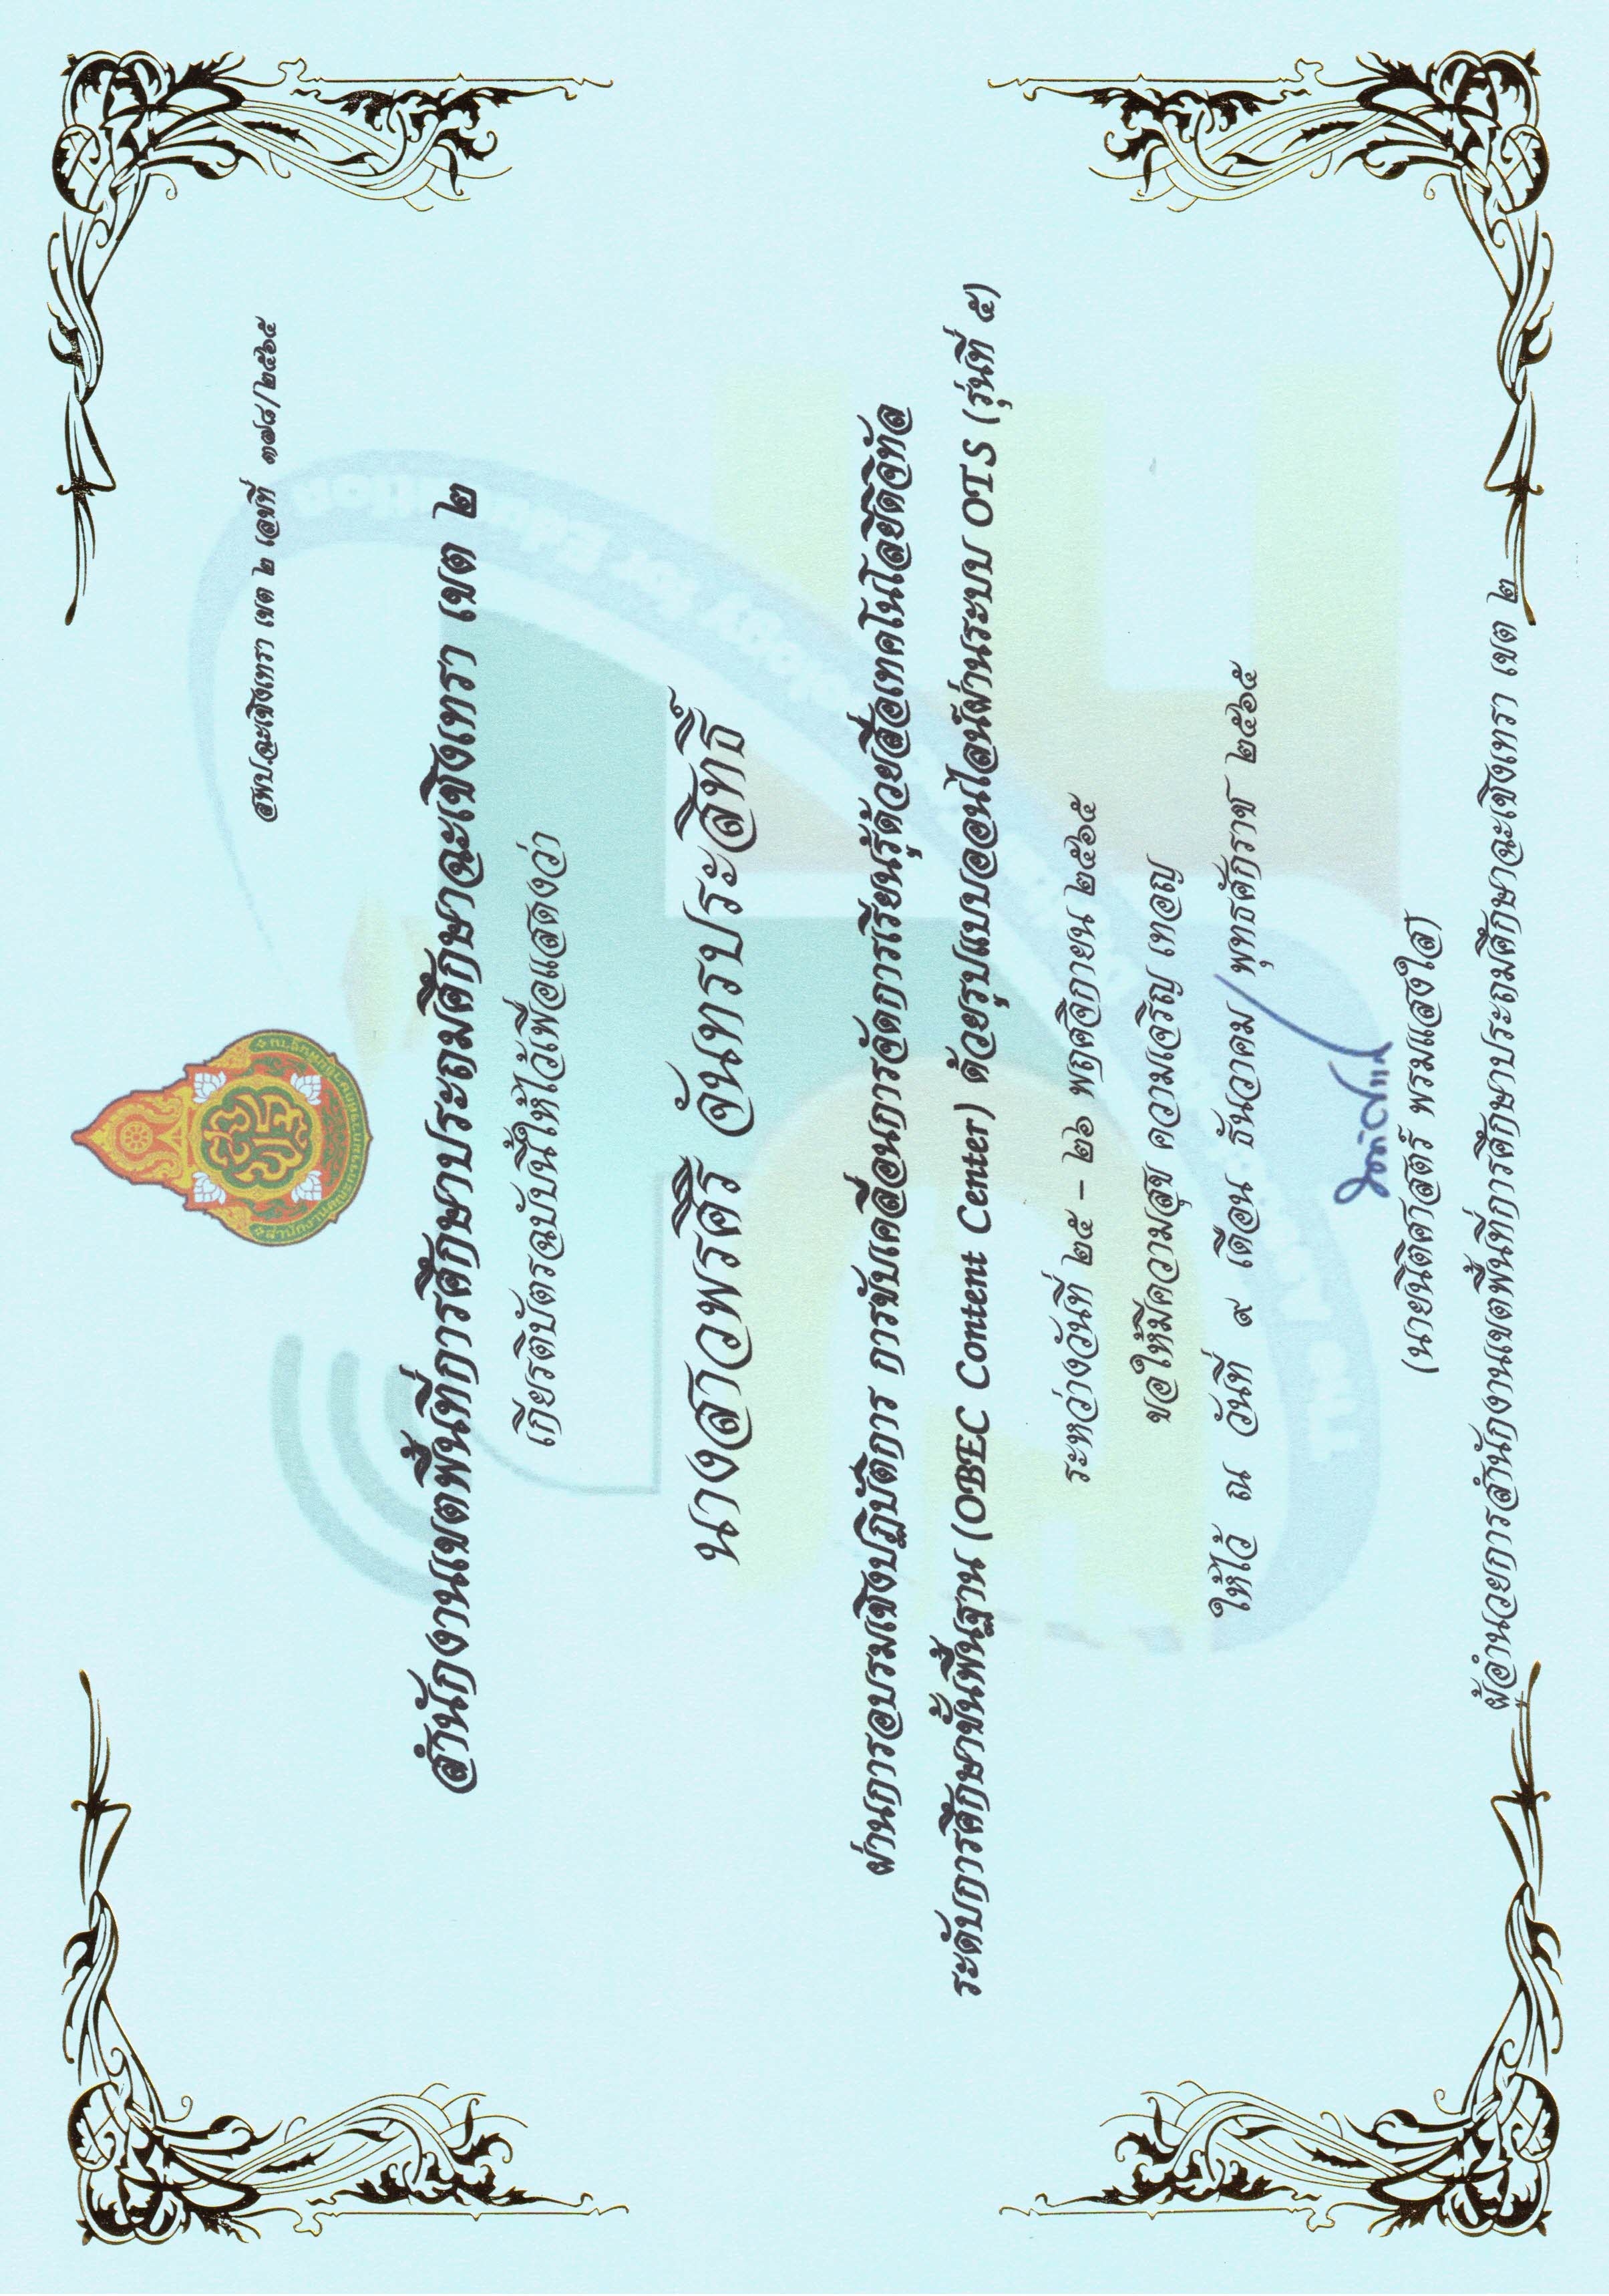 สพป.ฉะเชิงเทรา เขต ๒ เลขที่ ๓๗๘/๒๕๖๕
สำนักงานเขตพื้นที่การศึกษาประถมศึกษาฉะเชิงเทรา เขต ๒
เกียรติบัตรฉบับนี้ให้ไว้เพื่อแสดงว่า
นางสาวพรศิริ จันทรประสิทธิ์
ผ่านการอบรมเชิงปฏิบัติการ การขับเคลื่อนการจัดการเรียนรู้ด้วยสื่อเทคโนโลยีดิจิทัล
ระดับการศึกษาขั้นพื้นฐาน (OBEC Content Center) ด้วยรูปแบบออนไลน์ผ่านระบบ OTS (รุ่นที่ ๕)
ระหว่างวันที่ ๒๕ - ๒๖ พฤศจิกายน ๒๕๖๕
ขอให้มีความสุข ความเจริญ เทอญ
ให้ไว้ ณ วันที่ ๙ เดือน ธันวาคม พุทธศักราช ๒๕๖๕
(นายนิติศาสตร์ พรมแสงใส)
ผู้อำนวยการสำนักงานเขตพื้นที่การศึกษาประถมศึกษาฉะเชิงเทรา เขต ๒